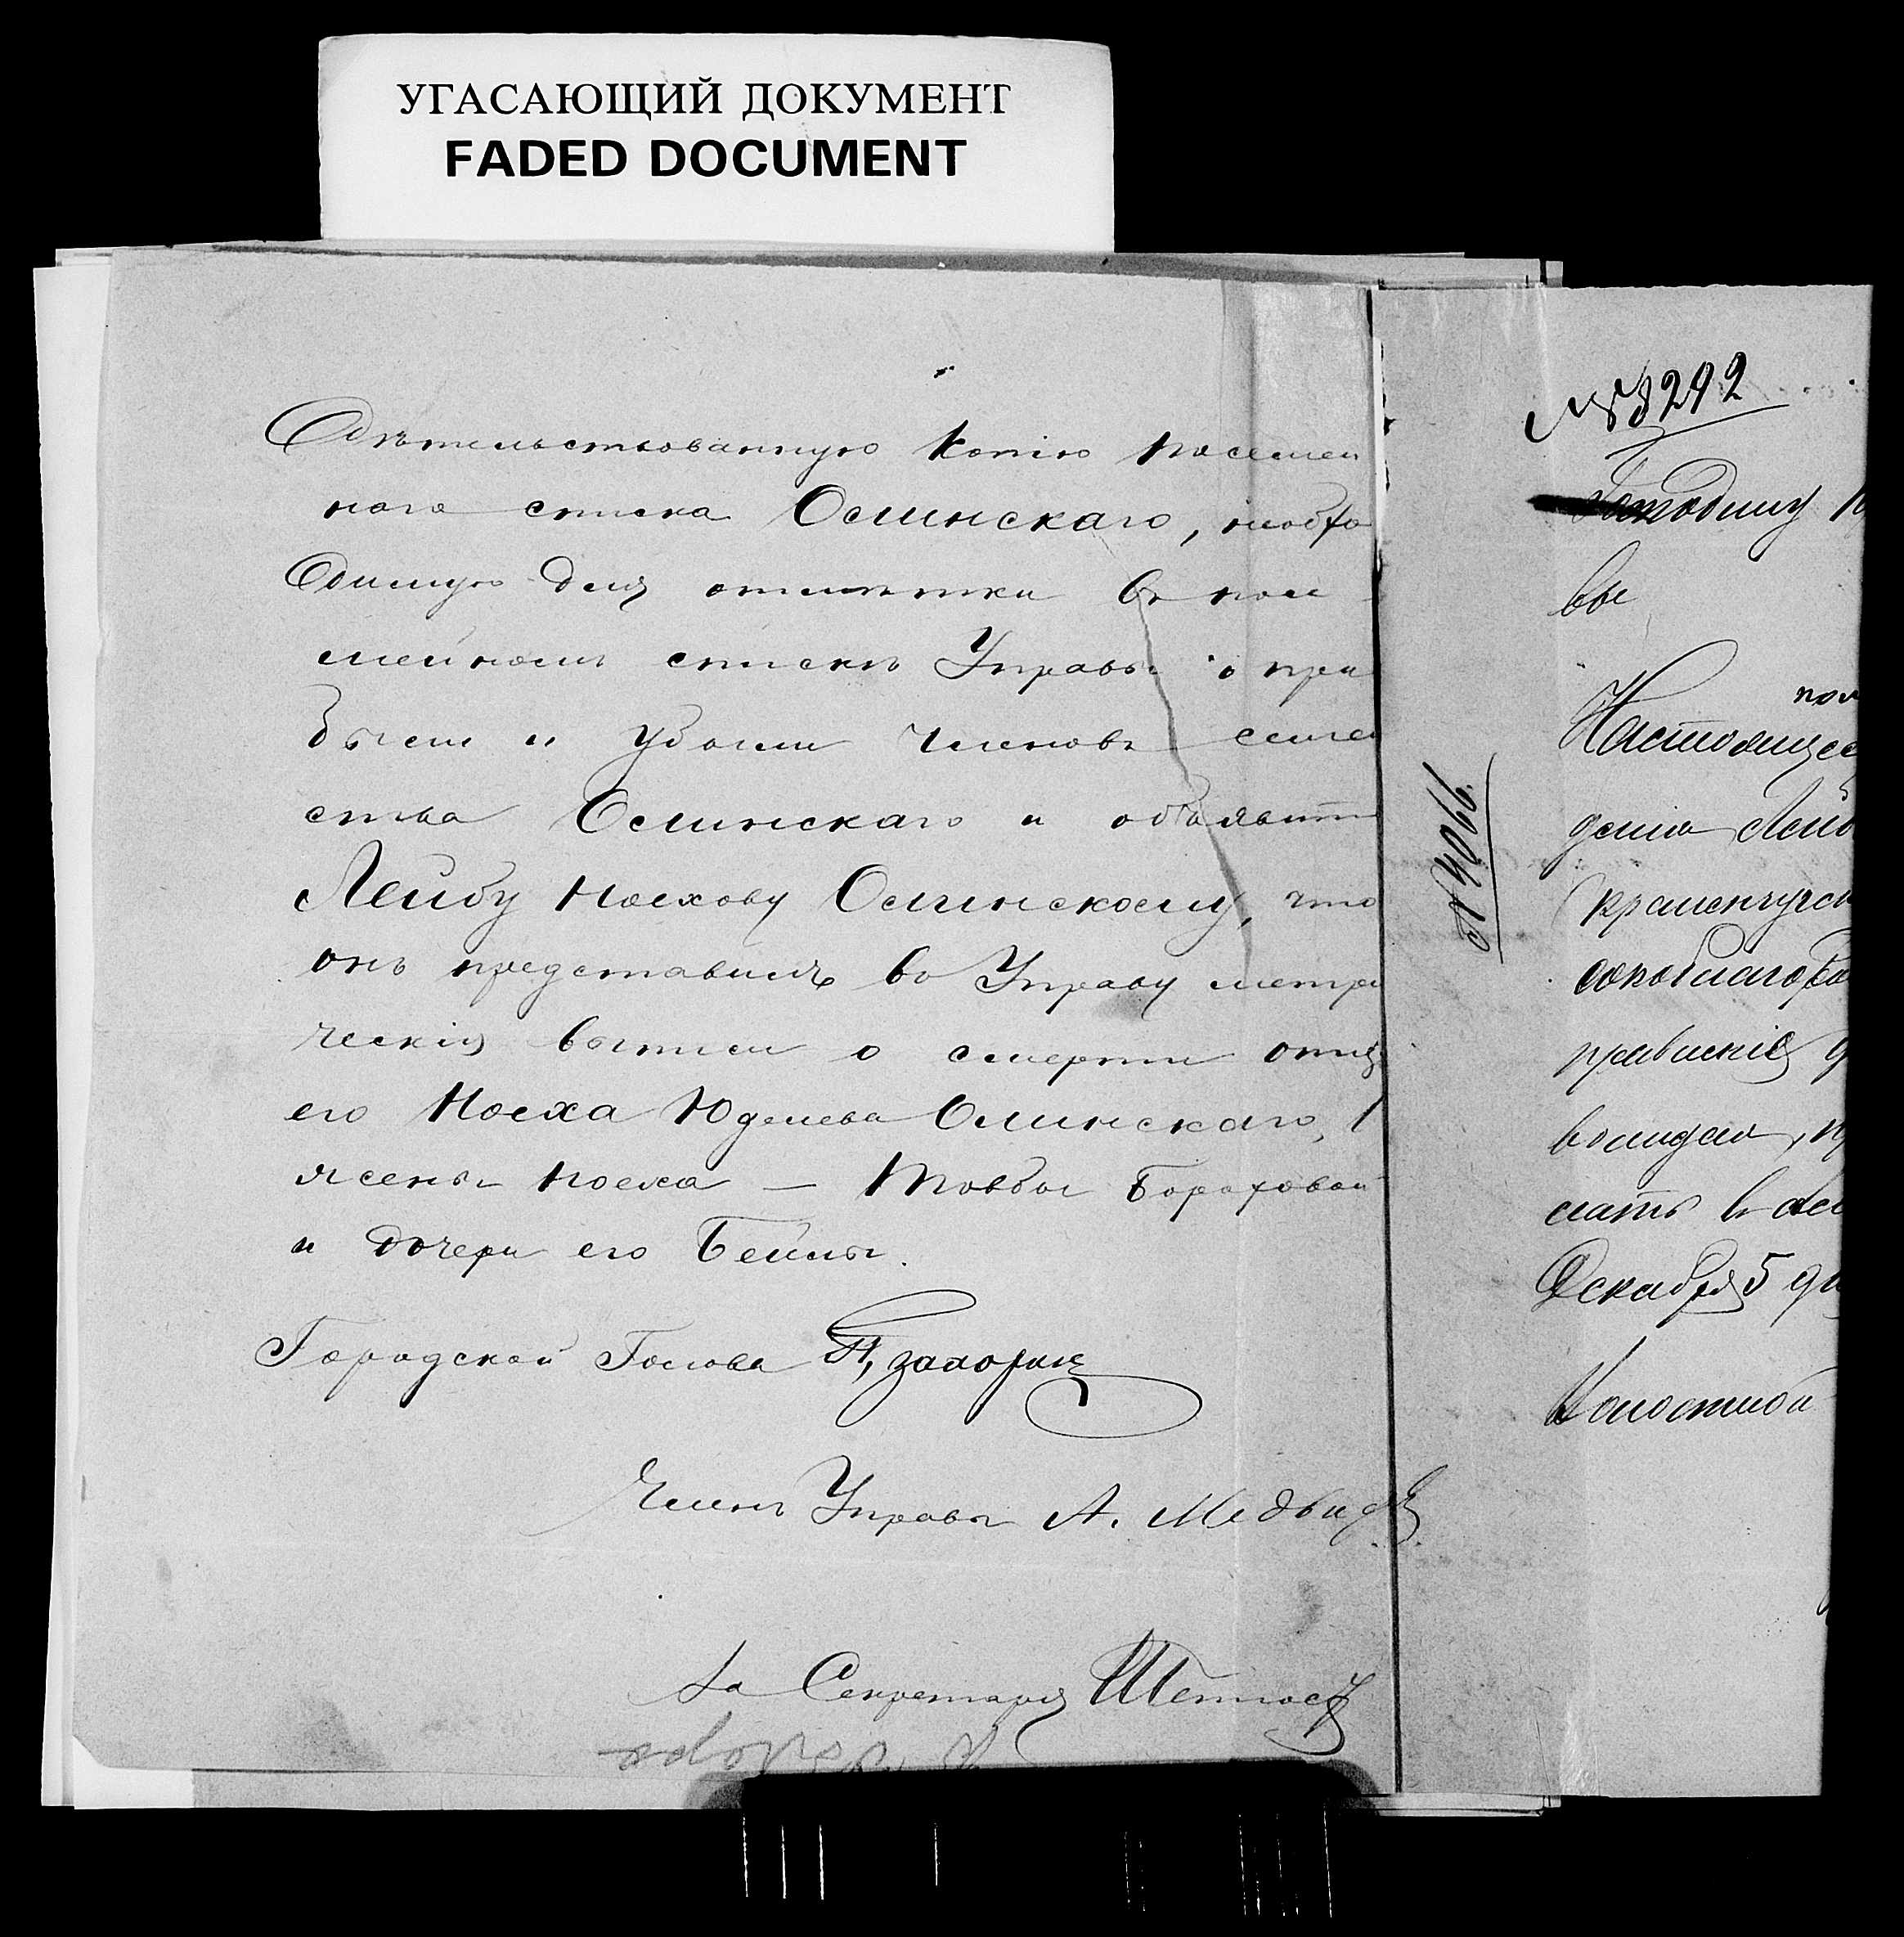 УГАСАЮЩИЙ ДОКУМЕНТ
FADED DOCUMENT
дѣтельствованную копію посемей
наго списка Ослинскаго, необхо
димую для отмѣтки въ посе
мейномъ спискѣ Управы о при
были и убыли членовъ семей
ства Ослинскаго и объявить
Лейбу Ноехову Ослинскому, что
онъ представилъ въ Управу метри
ческія выписи о смерти отца
его Ноеха Юделева Ослинскаго,
жены Ноеха — Товбы Бороховой
и дочери его Бейлы.
Городской Голова
Членъ Управы А. Медвид
За Секретаря
№ 4066.
№ 8292
вы
пол
Настоящее
денія Лейб
кременчугск
сокоблагоро
правленіе
сать
Декабря 5 дн